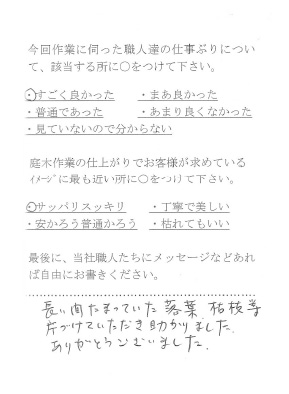 今回作業に伺った職人達の仕事ぶりについ
て、該当する所に〇をつけて下さい。
・すごく良かった ・まあ良かった
・普通であった ・あまり良くなかった
・見ていないので分からない
庭木作業の仕上がりでお客様が求めている
ｲﾒｰｼﾞに最も近い所に〇をつけて下さい。
・サッパリスッキリ ・丁寧で美しい
・安かろう普通かろう ・枯れてもいい
最後に、当社職人たちにメッセージなどあれ
ば自由にお書きください。
長い間たまっていた落葉、枯枝等
片づけていただき助かりました。
ありがとうございました。